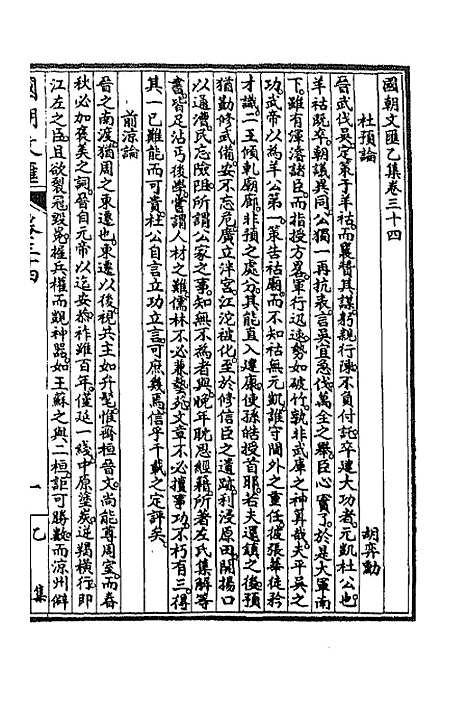 國朝文匯乙集卷三十四
杜預論
胡弈勳
晉武伐吳定策于羊祜而襄贊其謀躬親行陳不負付託卒建大功者元凱杜公也
羊祜既卒朝議異同公獨一再抗表言吳宜急伐萬全之舉臣心實了於是大軍南
下雖有渾濬諸臣而指授方略軍行迅速勢如破竹孰非武庫之神算哉夫平吳之
功武帝以為羊公第一策告祜廟而不知祜無元凱誰守閫外之重任彼張華徒矜
才識二王傾軋廟廊非預之處分其能直入建康使孫皓授首耶若夫還鎮之後預
猶勤修武備安不忘危廣立泮宮江沱被化至於修信臣之遺跡利浸原田開揚口
以通漕民忘險阻所謂公家之事知無不為者與晚年耽思經籍所著左氏集解等
書皆足沾丐後學嘗謂人材之難儒林不必兼藝苑文章不必擅事功不朽有三得
其一已難能而可貴杜公自言立功立言可庶幾焉信乎千載之定評矣
前涼論
晉之南渡猶周之東遷也東遷以後視共主如弁髦惟齊桓晉文尚能尊周室而春
秋必加褒美之詞晉自元帝以迄安恭祚雖百年僅延一綫中原塗炭逆羯橫行即
江左之臣且欲裂冠毀冕擁兵權而覬神器如王蘇之與二桓詎可勝數而涼州僻
國朝文匯
卷三十四
一
乙集